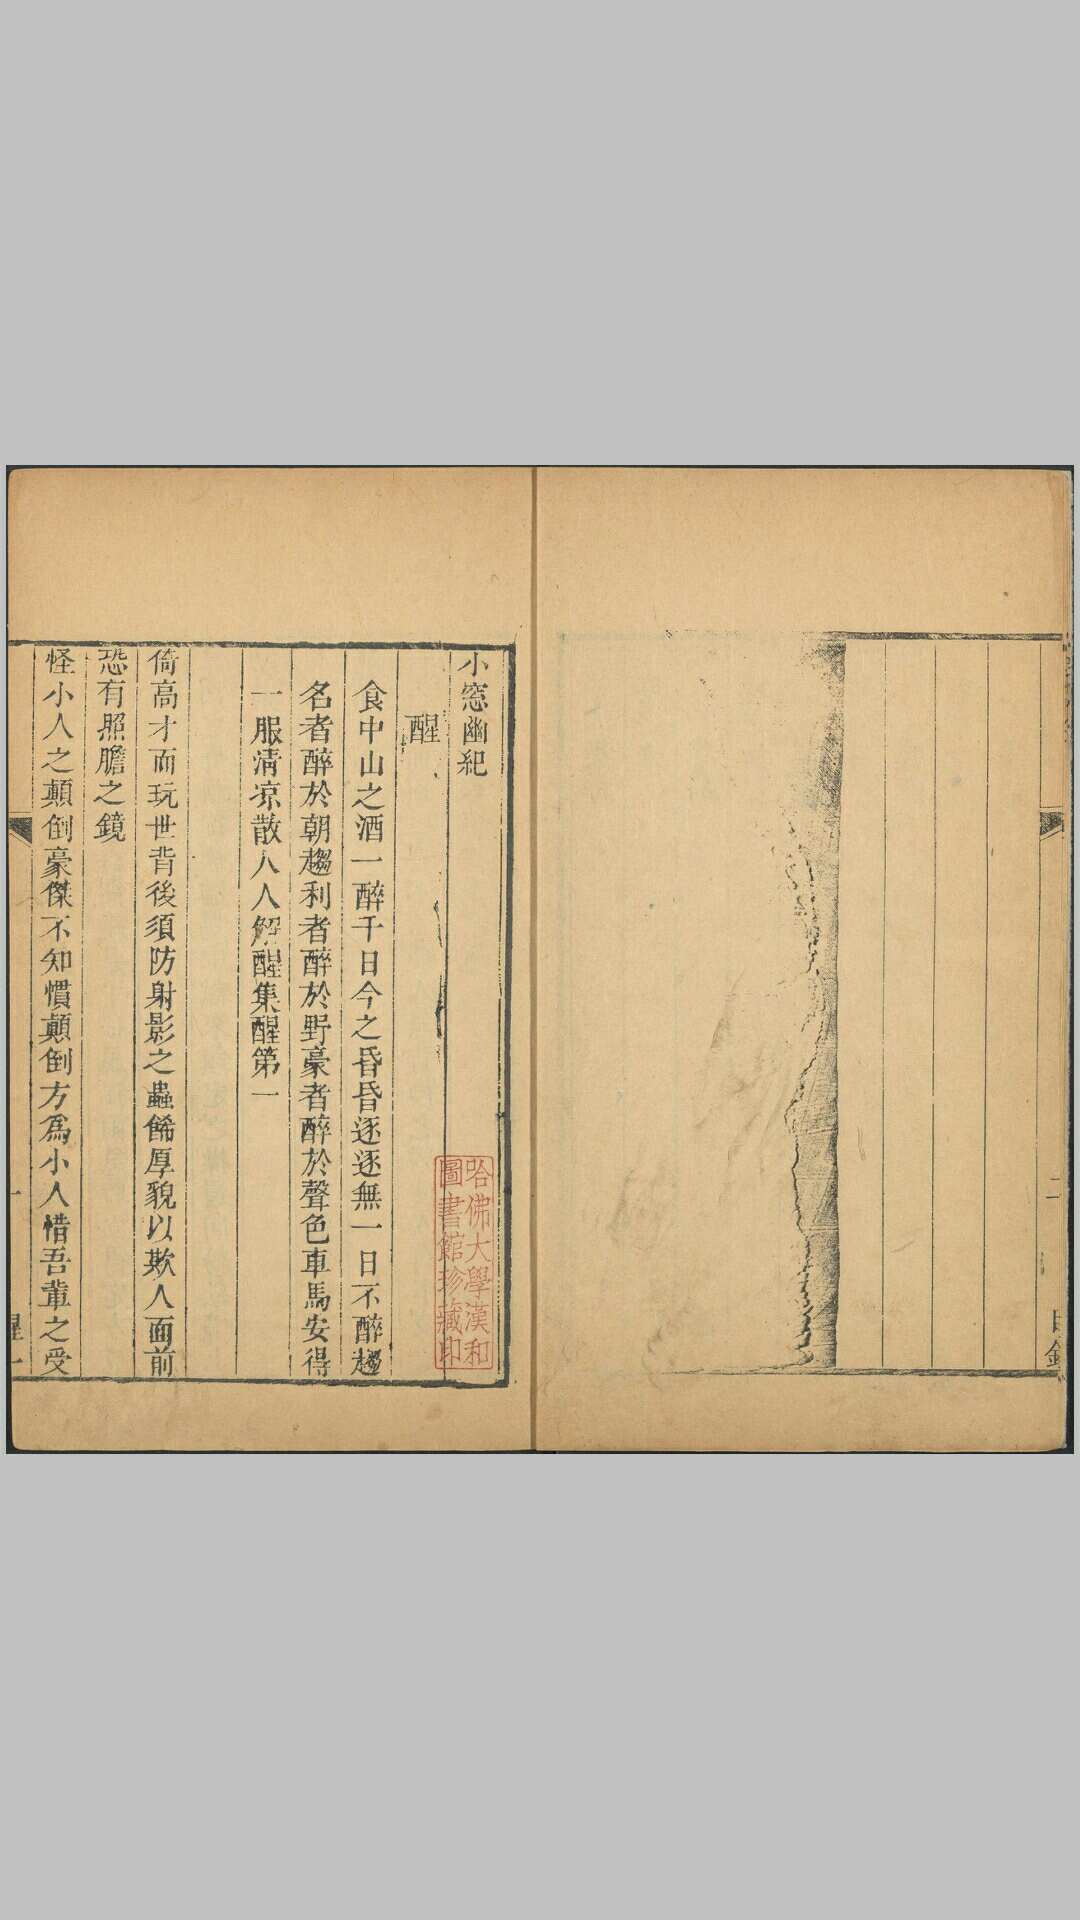 二
小窓幽紀
醒
食中山之酒一醉千日今之昏昏逐逐無一日不醉趨
名者醉於朝趨利者醉於野豪者醉於聲色車馬安得
一服清凉散人人解醒集醒第一
倚高才而玩世背後須防射影之蟲餙厚貌以欺人面前
恐有照膽之鏡
怪小人之顛倒豪傑不知慣顛倒方為小人惜吾輩之受
醒一
一
哈佛大學漢和
圖書館珍藏印